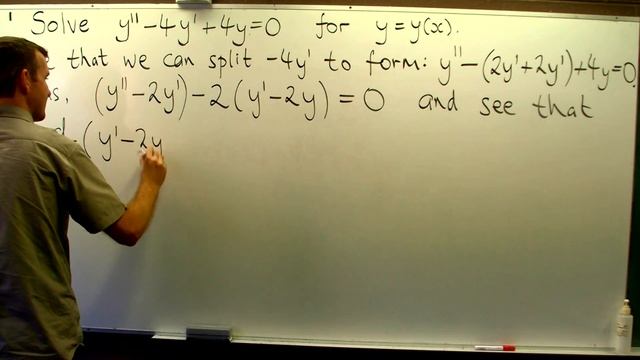 Solve y'' - 4y' + 4y = 0 for y = y(x).
that we can split -4y' to form: y'' - (2y' + 2y') + 4y = 0
(y'' - 2y') - 2(y' - 2y) = 0 and see that
(y' - 2y